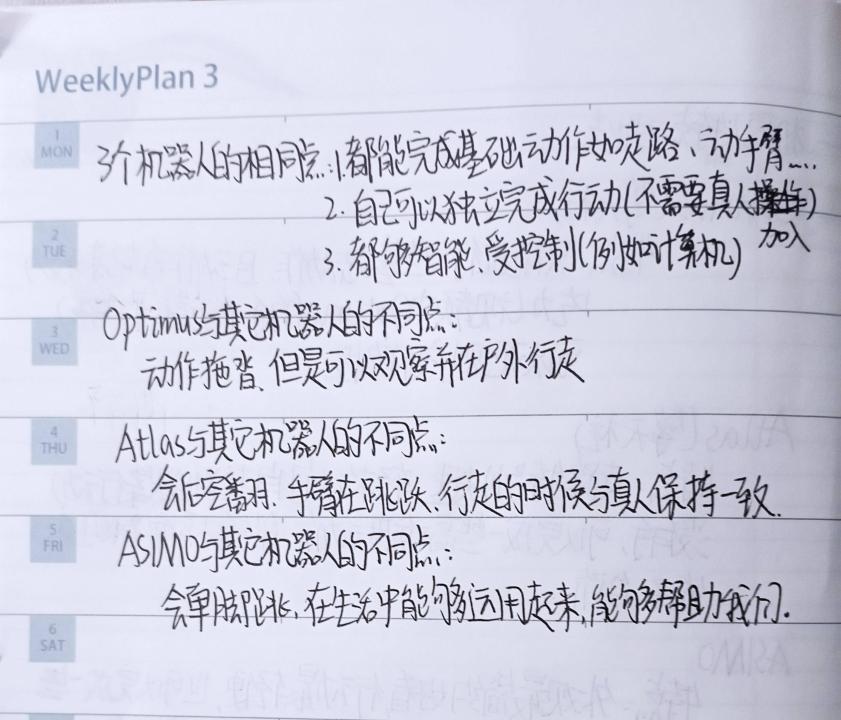 WeeklyPlan 3
1
MON
3个机器人的相同点:1.都能完成基础运动作如走路、动手臂....
2. 自己可以独立完成行动(不需要真人操作)
加入
2
TUE
3. 都够智能、受控制(例如计算机)
Optimus与其它机器人的不同点:
3
WED
动作拖沓、但是可以观察并在户外行走
4
THU
Atlas与其它机器人的不同点:
会后空翻、手臂在跳跃、行走的时候与真人保持一致.
5
FRI
ASIMO与其它机器人的不同点:
会单脚跳, 在生活中能够运用起来, 能够帮助我们.
6
SAT